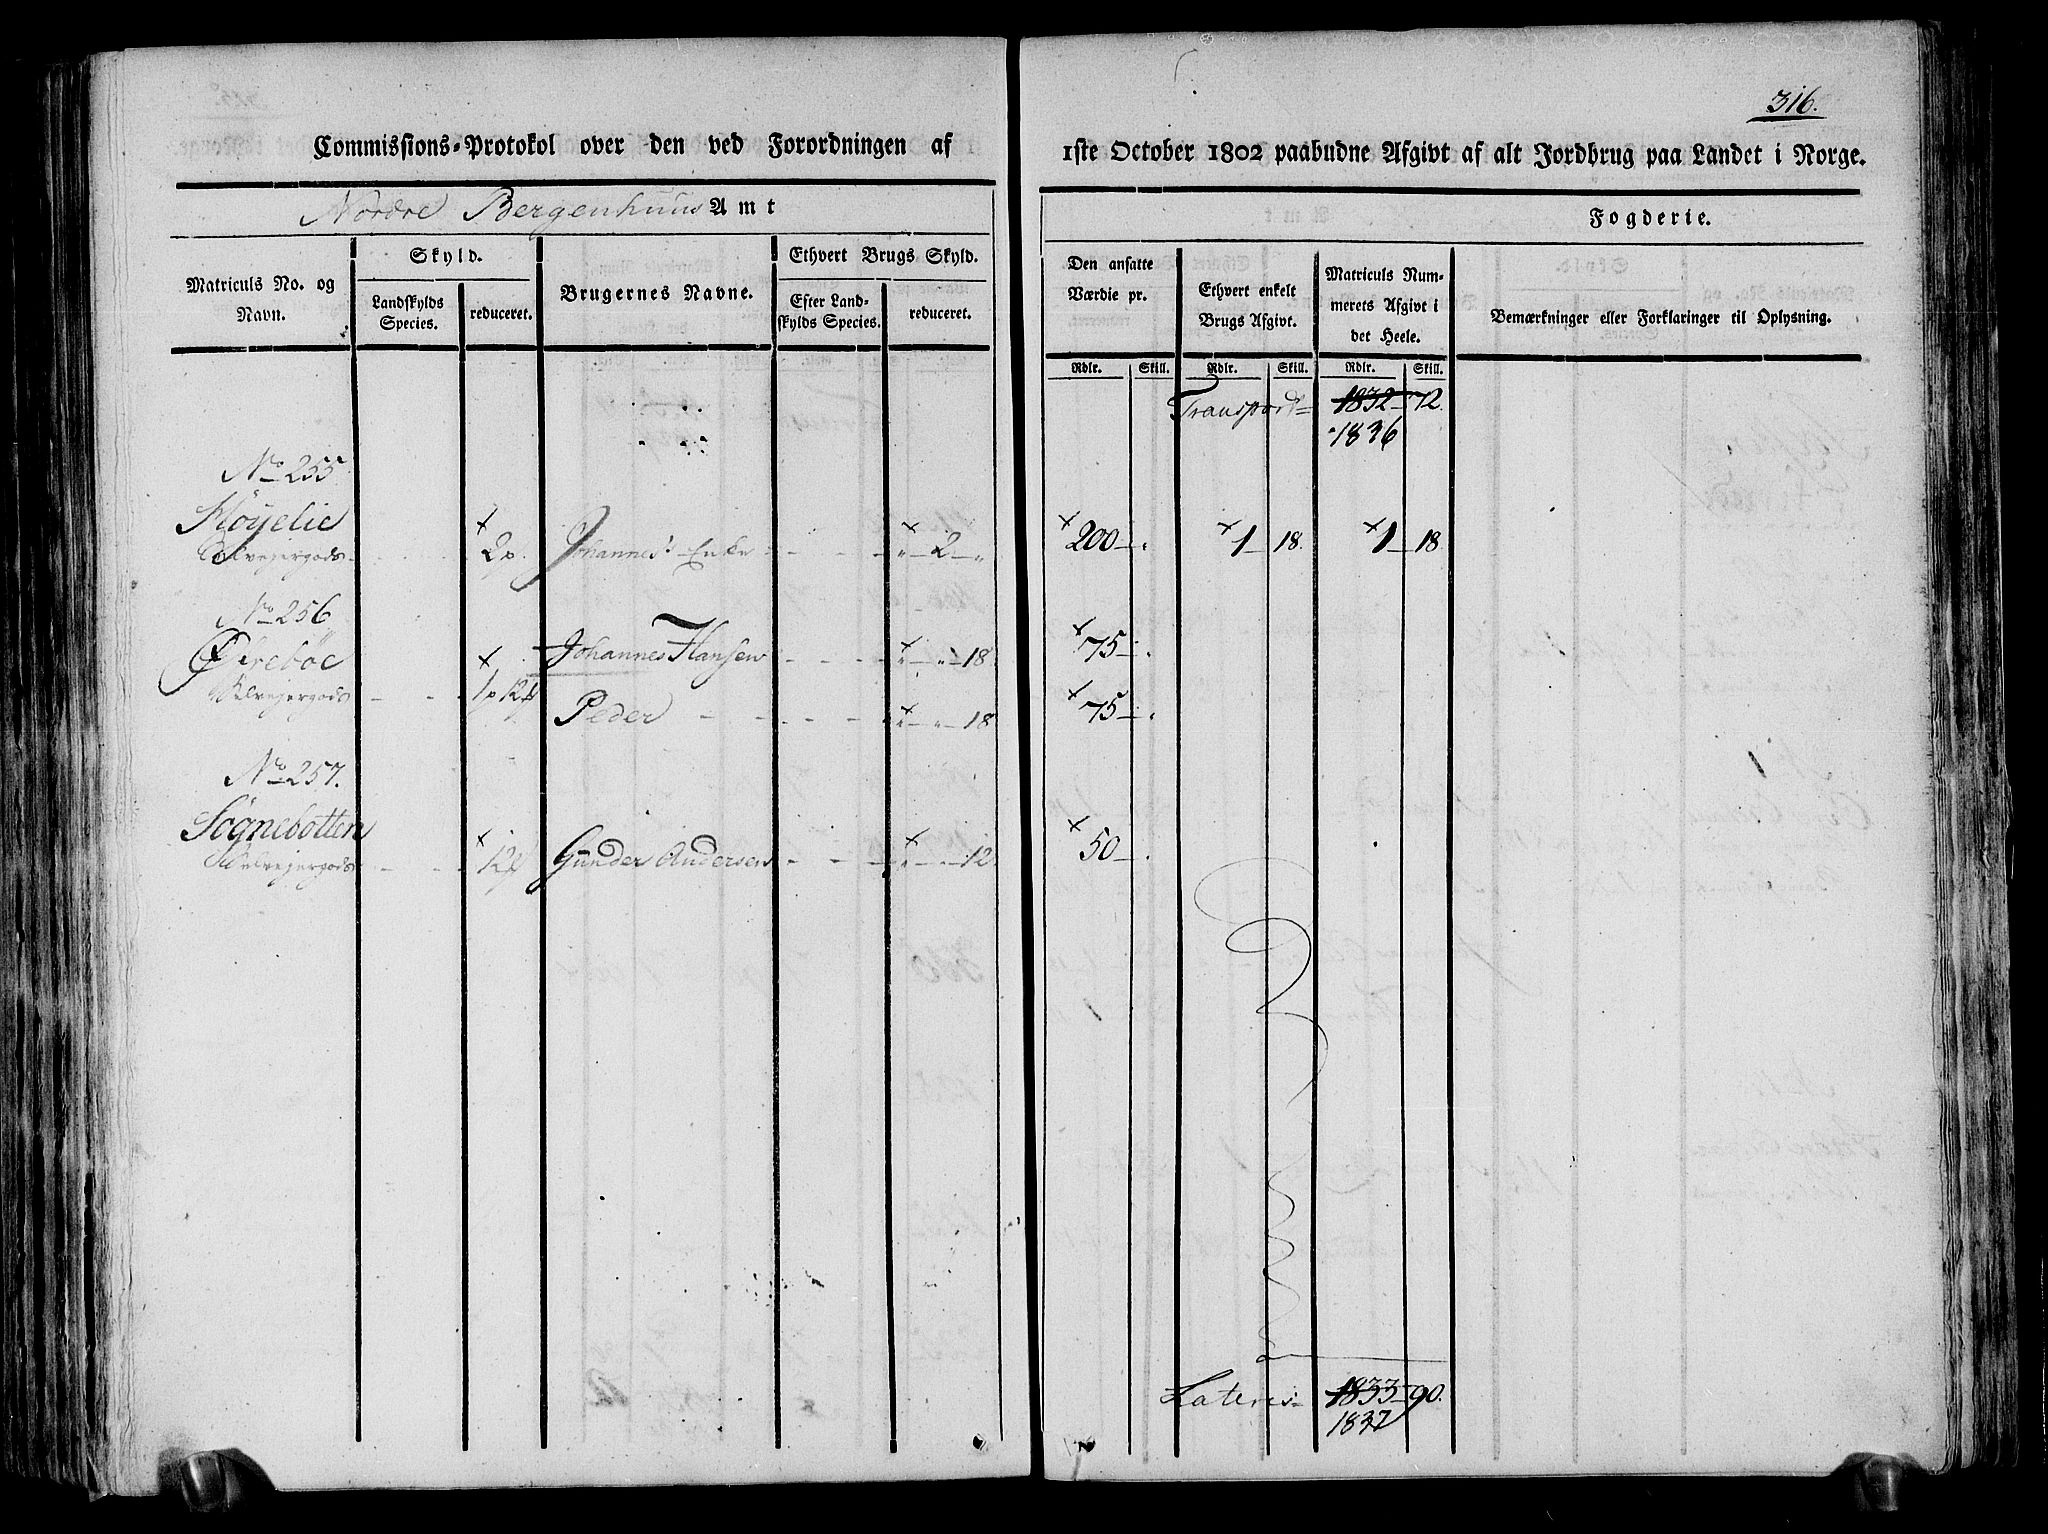 316.
Commissions-Protokol over den ved Forordningen af 1ste October 1802 paabudne Afgivt af alt Jordbrug paa Landet i Norge.
Nordre Bergenhuus Amt
Fogderie.
Matriculs No. og Navn.
Skyld.
Landskylds Species.
reduceret.
Brugernes Navne.
Ethvert Brugs Skyld.
Efter Landskylds Species.
reduceret.
Den ansatte Værdie pr.
Ethvert enkelt Brugs Afgivt.
Matriculs Nummerets Afgivt i det Heele.
Bemærkninger eller Forklaringer til Oplysning.
Rdlr. Skill. Rdlr. Skill. Rdlr. Skill.
Transport= 1832-72.
1836
No 255
Kløyelie
Selvejergods - - 2p. Johannes' Enke - - - „ - 2 - „ 200 - „ 1 - 18. 1 - 18.
No 256
Øirebøe Johannes Hansen - - - „ - „ - 18 75 - „
Selvejergods - - 1p 12 Peder - - - - „ - „ - 18 75 - „
No 257.
Sognebotten
Selvejergods - - 12 Gunder Andersen - - - „ - „ - 12 50 - „
Lateris 1833-90.
1837